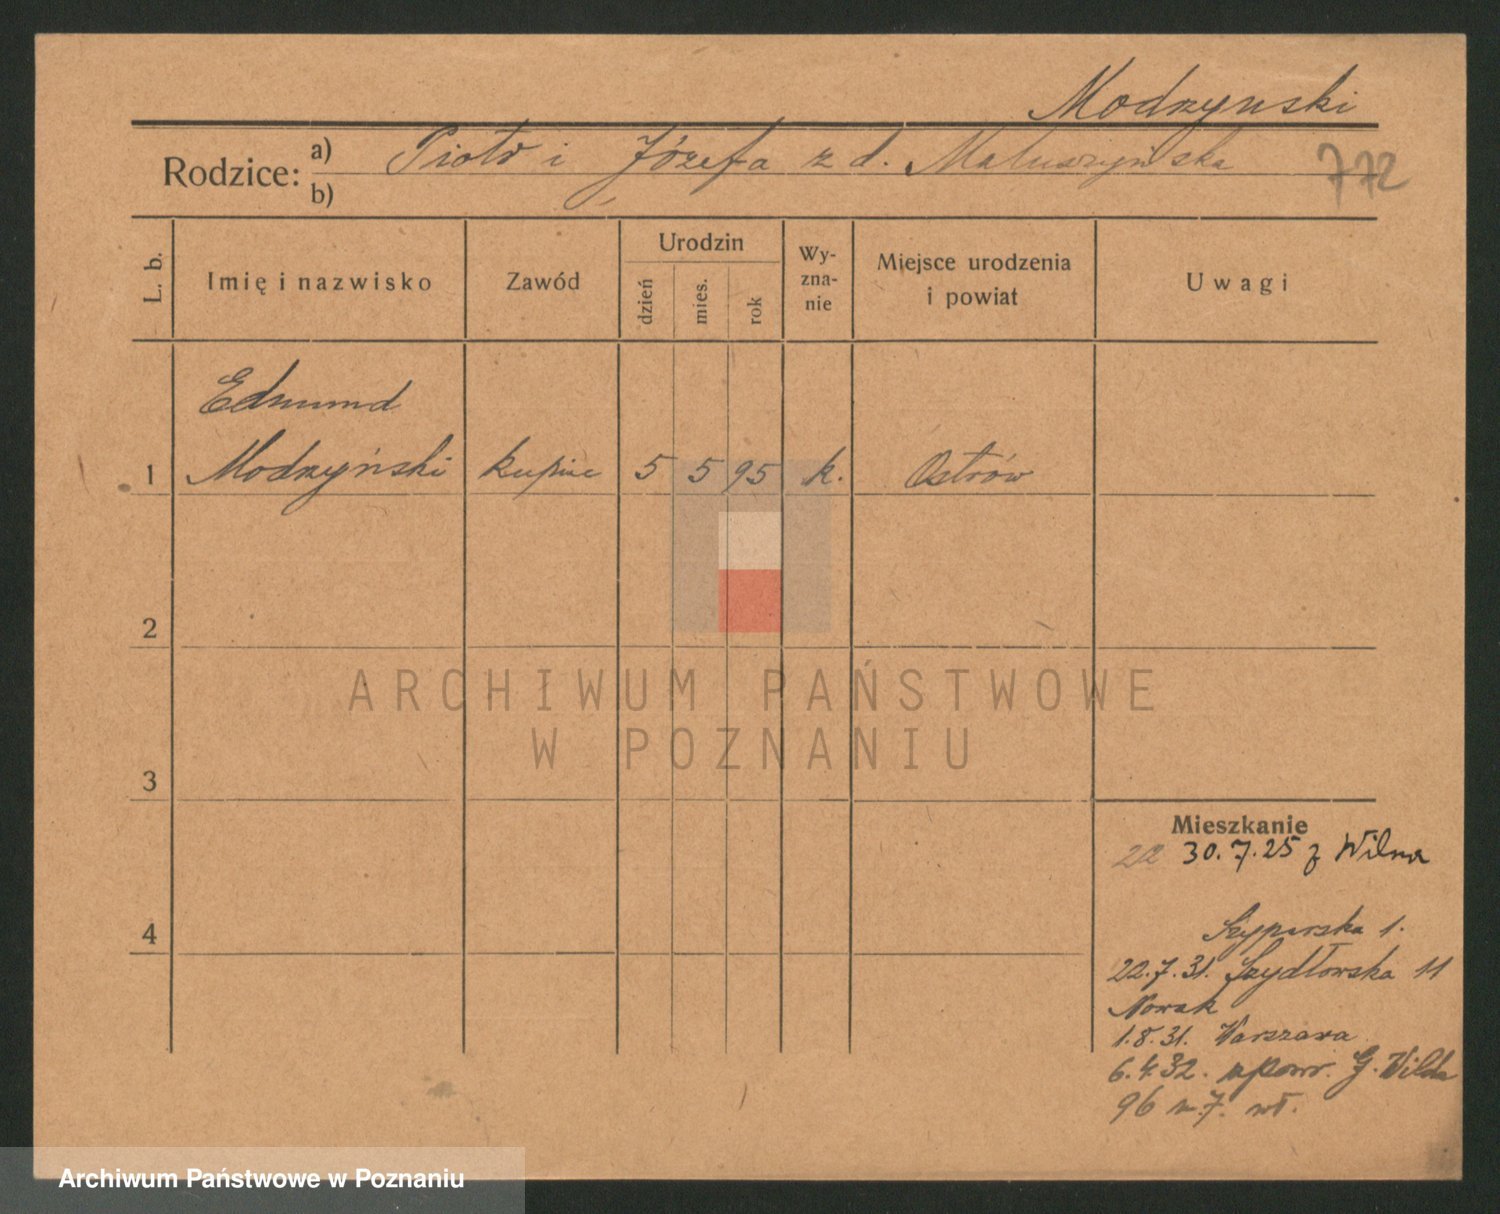 Modrzynski
Rodzice: a) Piotr i Józefa z d. Matuszyńska 772
b)
L. b. Imię i nazwisko Zawód Urodzin dzień mies. rok Wy-zna-nie Miejsce urodzenia i powiat Uwagi
Edmund
1 Modrzyński kupiec 5 5 95 k. Ostrów
2
ARCHIWUM PAŃSTWOWE
W POZNANIU
3
Mieszkanie
22 30.7.25 z Wilna
4
Szyperska 1.
22.7.31. Szydłowska 11
Nowak
1.8.31. Warszawa
6.4.32. z pow. G. Wilda
96 m. 7. wł.
Archiwum Państwowe w Poznaniu